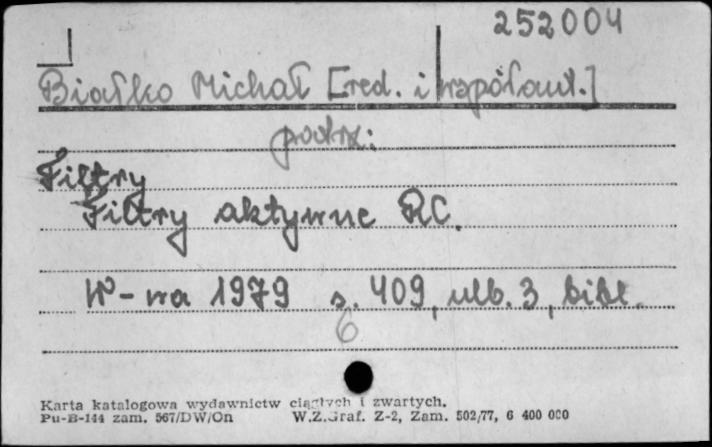 252004
Białko Michał [red. i współaut.]
podrz:
Filtry
Filtry aktywne RC.
W-wa 1979 s. 409, nlb. 3, bibl.
6
Karta katalogowa wydawnictw ciągłych i zwartych.
Pu-B-144 zam. 567/DW/On W.Z.Graf. Z-2, Zam. 502/77, 6 400 000